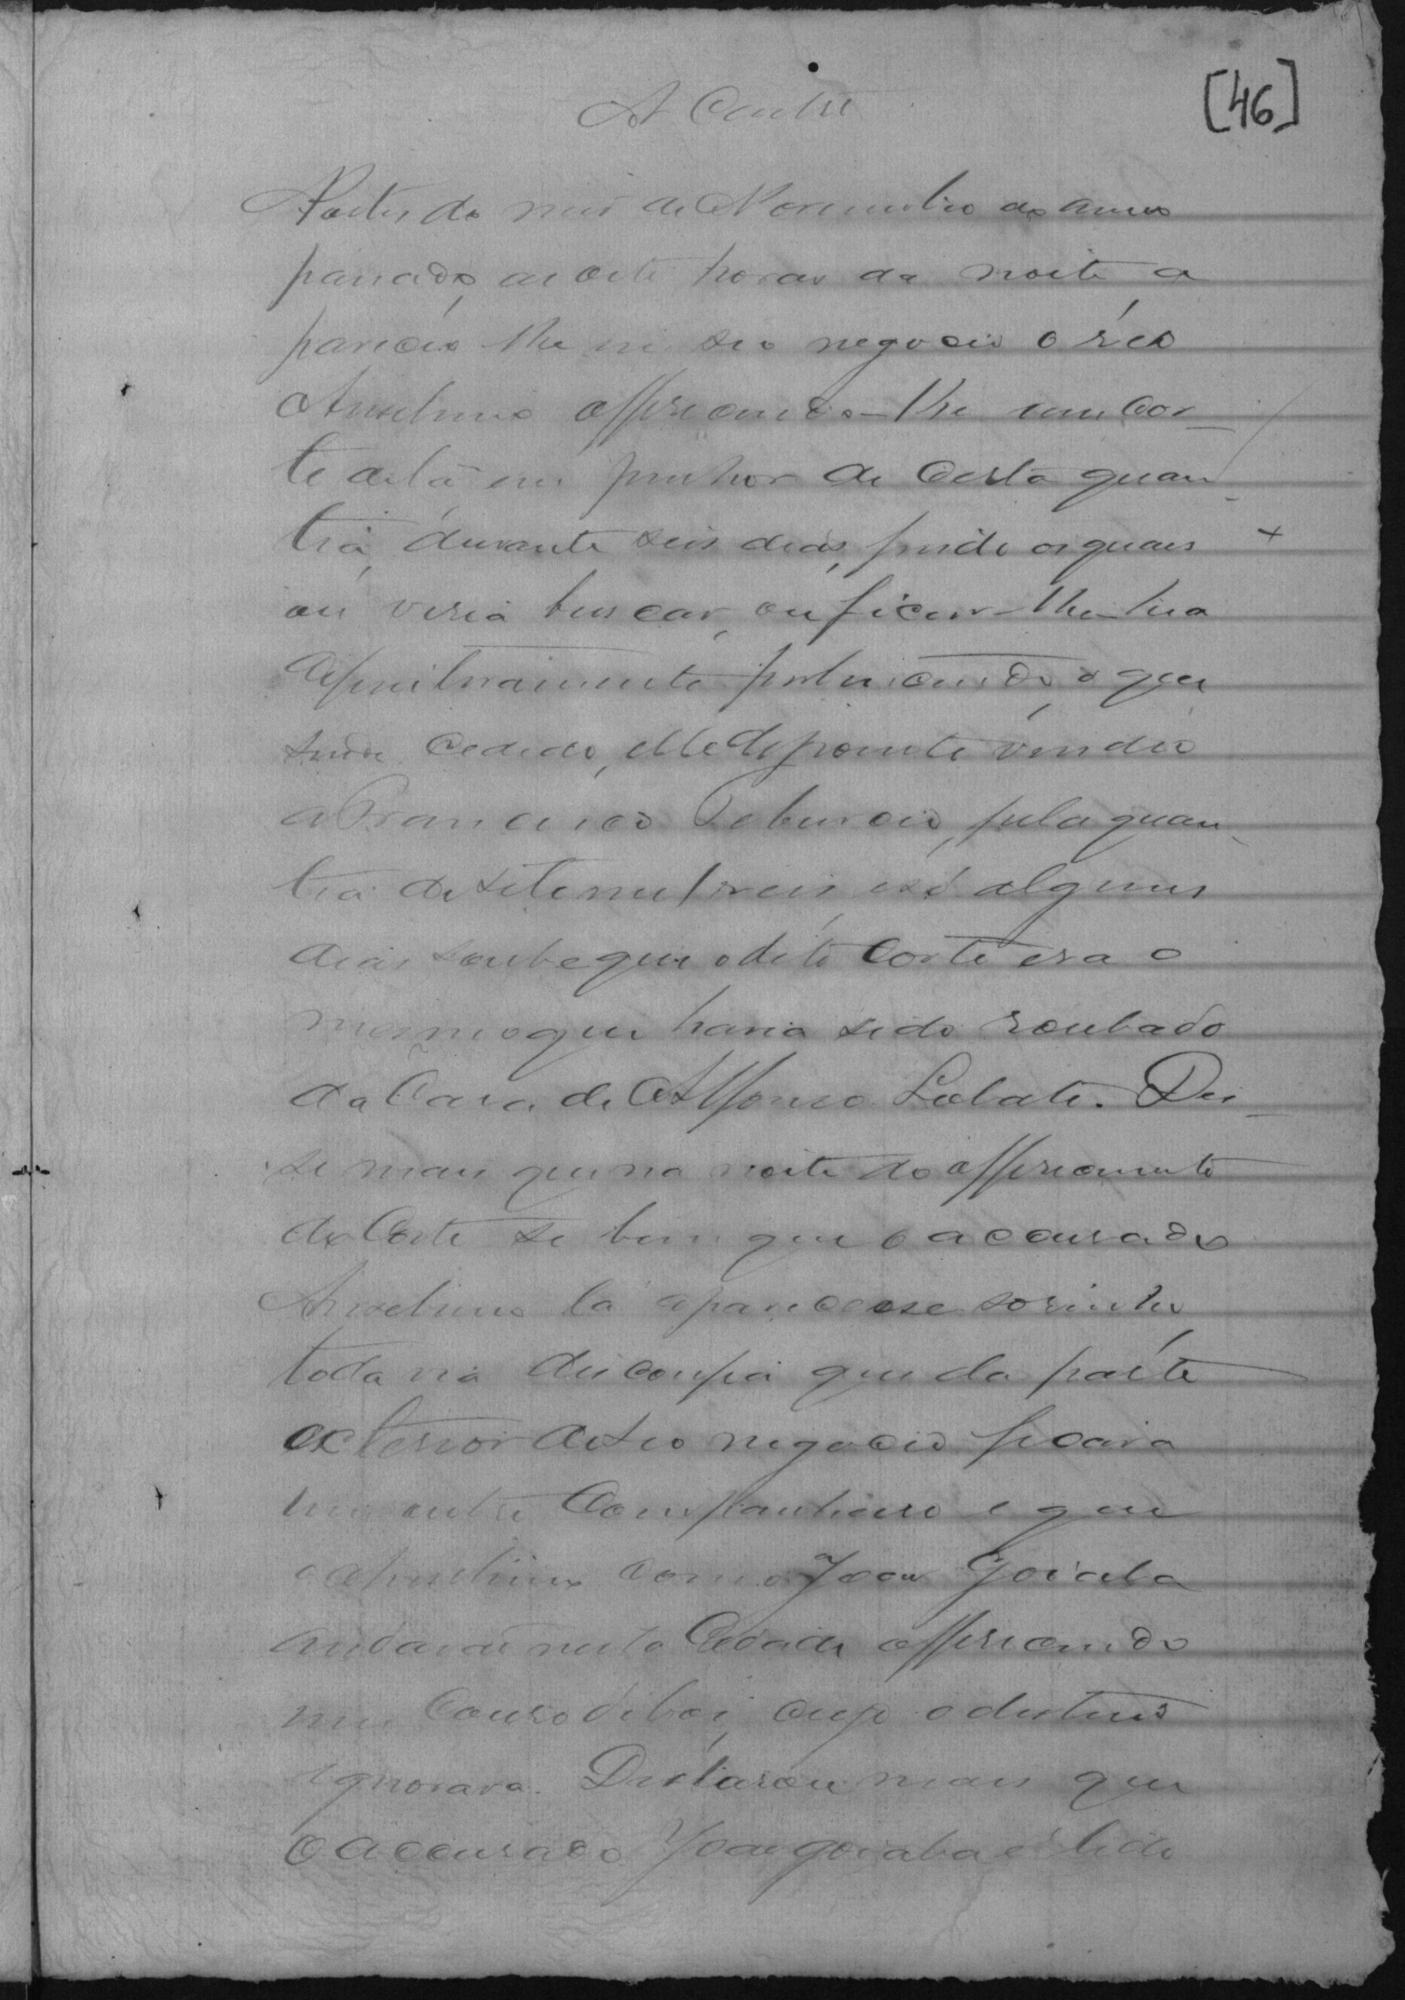 [46]
A Contr
Partes do mes de Novembro do anno
passado, as oito horas da noite a
pareceo lhe em seo negocio o réo
Anselmo offerecendo-lhe um cor-
te de lã em penhor de certa quan
tia, durante seis dias, findo os quaes
ou viria buscar, ou ficar-lhe-hia
pertencendo, o que
sendo cedido, elle depoente vendeo
a Francisco Teburcio, pela quan-
tia de sete mil reis, e só alguns
dias soube que o dito corte era o
mesmo que havia sido roubado
da Casa de Affonso Lobato. Dis-
se mais que na noite do offerecimento
do Corte se bem que o accusado
Anselmo lá aparecesse sosinho
toda via desconfia que da parte
exterior de seo negocio ficara
um outro Companheiro e que
Anselmo como João Goiaba
andavão nesta Cidade offerecendo
um Couro de boi, cujo o destino
ignorava. Declarou mais que
o accusado João goiaba é tido